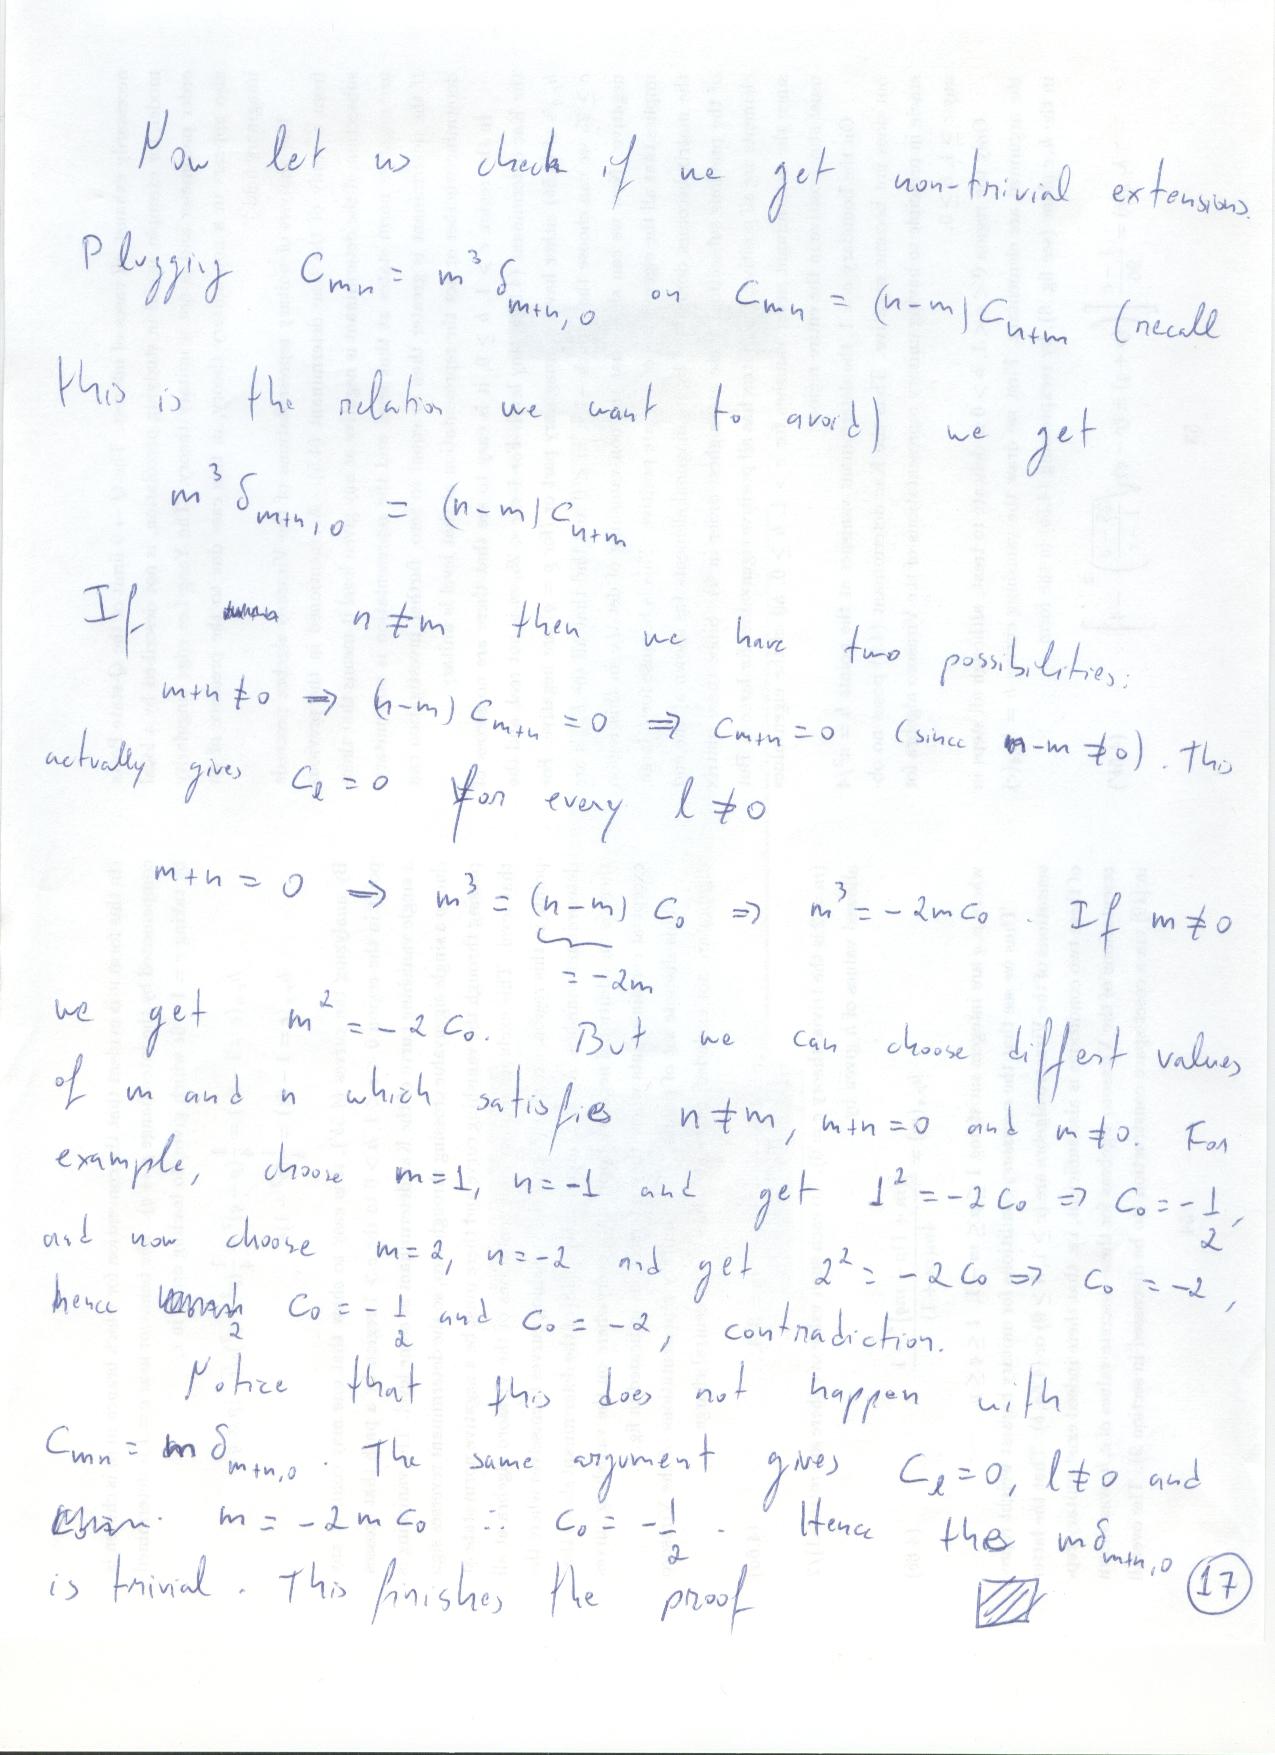 Now let us check if we get non-trivial extensions.
Plugging C_{mn} = m^3 δ_{m+n,0} on C_{mn} = (n-m) C_{n+m} (recall
this is the relation we want to avoid) we get
m^3 δ_{m+n,0} = (n-m) C_{n+m}
If n ≠ m then we have two possibilities:
m+n ≠ 0 ⇒ (n-m) C_{m+n} = 0 ⇒ C_{m+n} = 0 (since n-m ≠ 0). This
actually gives C_l = 0 for every l ≠ 0
m+n = 0 ⇒ m^3 = (n-m) C_0 ⇒ m^3 = -2m C_0. If m ≠ 0
= -2m
we get m^2 = -2 C_0. But we can choose differt values
of m and n which satisfies n ≠ m, m+n = 0 and m ≠ 0. For
example, choose m=1, n=-1 and get 1^2 = -2 C_0 ⇒ C_0 = -1/2,
and now choose m=2, n=-2 and get 2^2 = -2 C_0 ⇒ C_0 = -2,
hence C_0 = -1/2 and C_0 = -2, contradiction.
Notice that this does not happen with
C_{mn} = m δ_{m+n,0}. The same argument gives C_l = 0, l ≠ 0 and
m = -2m C_0 ∴ C_0 = -1/2. Hence the m δ_{m+n,0}
is trivial. This finishes the proof
17